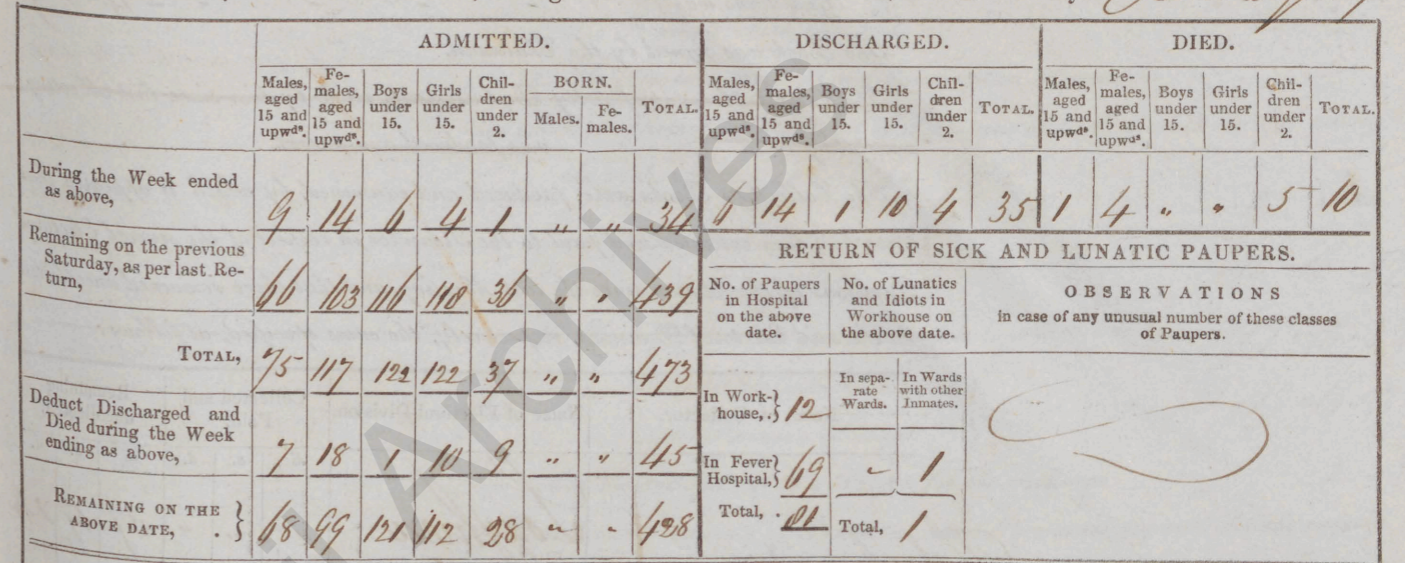 ADMITTED. DISCHARGED. DIED.
Males, aged 15 and upwds. Females, aged 15 and upwds. Boys under 15. Girls under 15. Children under 2. BORN. Males. Females. TOTAL. Males, aged 15 and upwds. Females, aged 15 and upwds. Boys under 15. Girls under 15. Children under 2. TOTAL. Males, aged 15 and upwds. Females, aged 15 and upwds. Boys under 15. Girls under 15. Children under 2. TOTAL.
During the Week ended
as above, 9 14 6 4 1 " " 34 6 14 1 10 4 35 1 4 " " 5 10
Remaining on the previous
Saturday, as per last Re-
turn, 66 103 116 118 36 " " 439
TOTAL, 75 117 122 122 37 " " 473
Deduct Discharged and
Died during the Week
ending as above, 7 18 1 10 9 " " 45
REMAINING ON THE
ABOVE DATE, . } 68 99 121 112 28 " " 428
RETURN OF SICK AND LUNATIC PAUPERS.
No. of Paupers
in Hospital
on the above
date.
No. of Lunatics
and Idiots in
Workhouse on
the above date.
OBSERVATIONS
in case of any unusual number of these classes
of Paupers.
In sepa-
rate
Wards.
In Wards
with other
Inmates.
In Work-
house, . } 12
In Fever
Hospital, } 69 " 1
Total, . 81 Total, 1
Archives